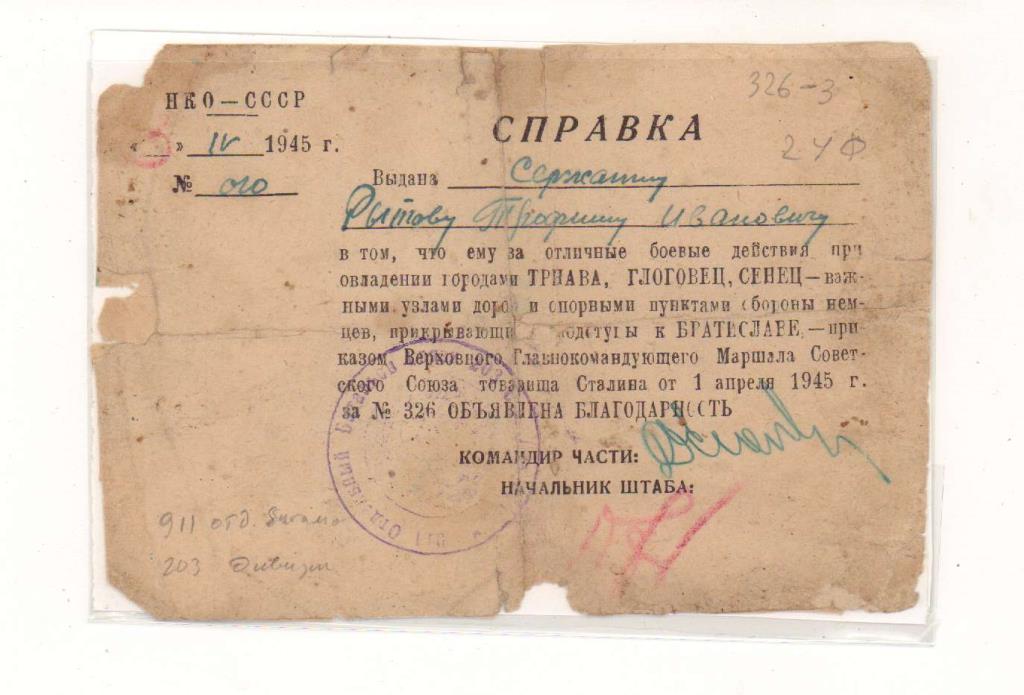 НКО—СССР
326-3
СПРАВКА
« » IV 1945 г.
2 У Ф
№ 010
Выдана Сержанту
Рытову Трофиму Ивановичу
в том, что ему за отличные боевые действия при
овладении городами ТРНАВА, ГЛОГОВЕЦ, СЕНЕЦ—важ-
ными узлами дорог и опорными пунктами обороны нем-
цев, прикрывающи подступы к БРАТИСЛАВЕ,—при-
казом Верховного Главнокомандующего Маршала Совет-
ского Союза товарища Сталина от 1 апреля 1945 г.
за № 326 ОБЪЯВЛЕНА БЛАГОДАРНОСТЬ
КОМАНДИР ЧАСТИ:
НАЧАЛЬНИК ШТАБА:
911 Отдельный 203
911 отд.
203 дивизи